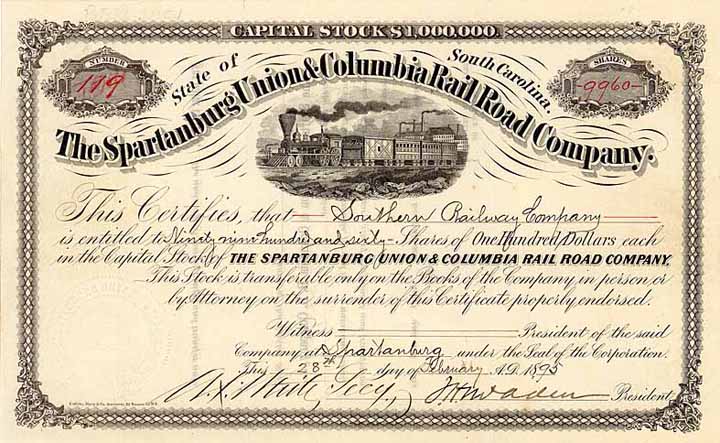 CAPITAL STOCK $1,000,000.
NUMBER
119
SHARES
-9960-
State of South Carolina.
The Spartanburg Union & Columbia Rail Road Company.
This Certifies, that Southern Railway Company
is entitled to Ninety nine hundred and sixty - Shares of One Hundred Dollars each
in the Capital Stock of THE SPARTANBURG UNION & COLUMBIA RAIL ROAD COMPANY.
This Stock is transferable only on the Books of the Company in person or
by Attorney on the surrender of this Certificate properly endorsed.
Witness President of the said
Company at Spartanburg under the Seal of the Corporation.
This 28th day of February A.D. 1895
Secy. President.